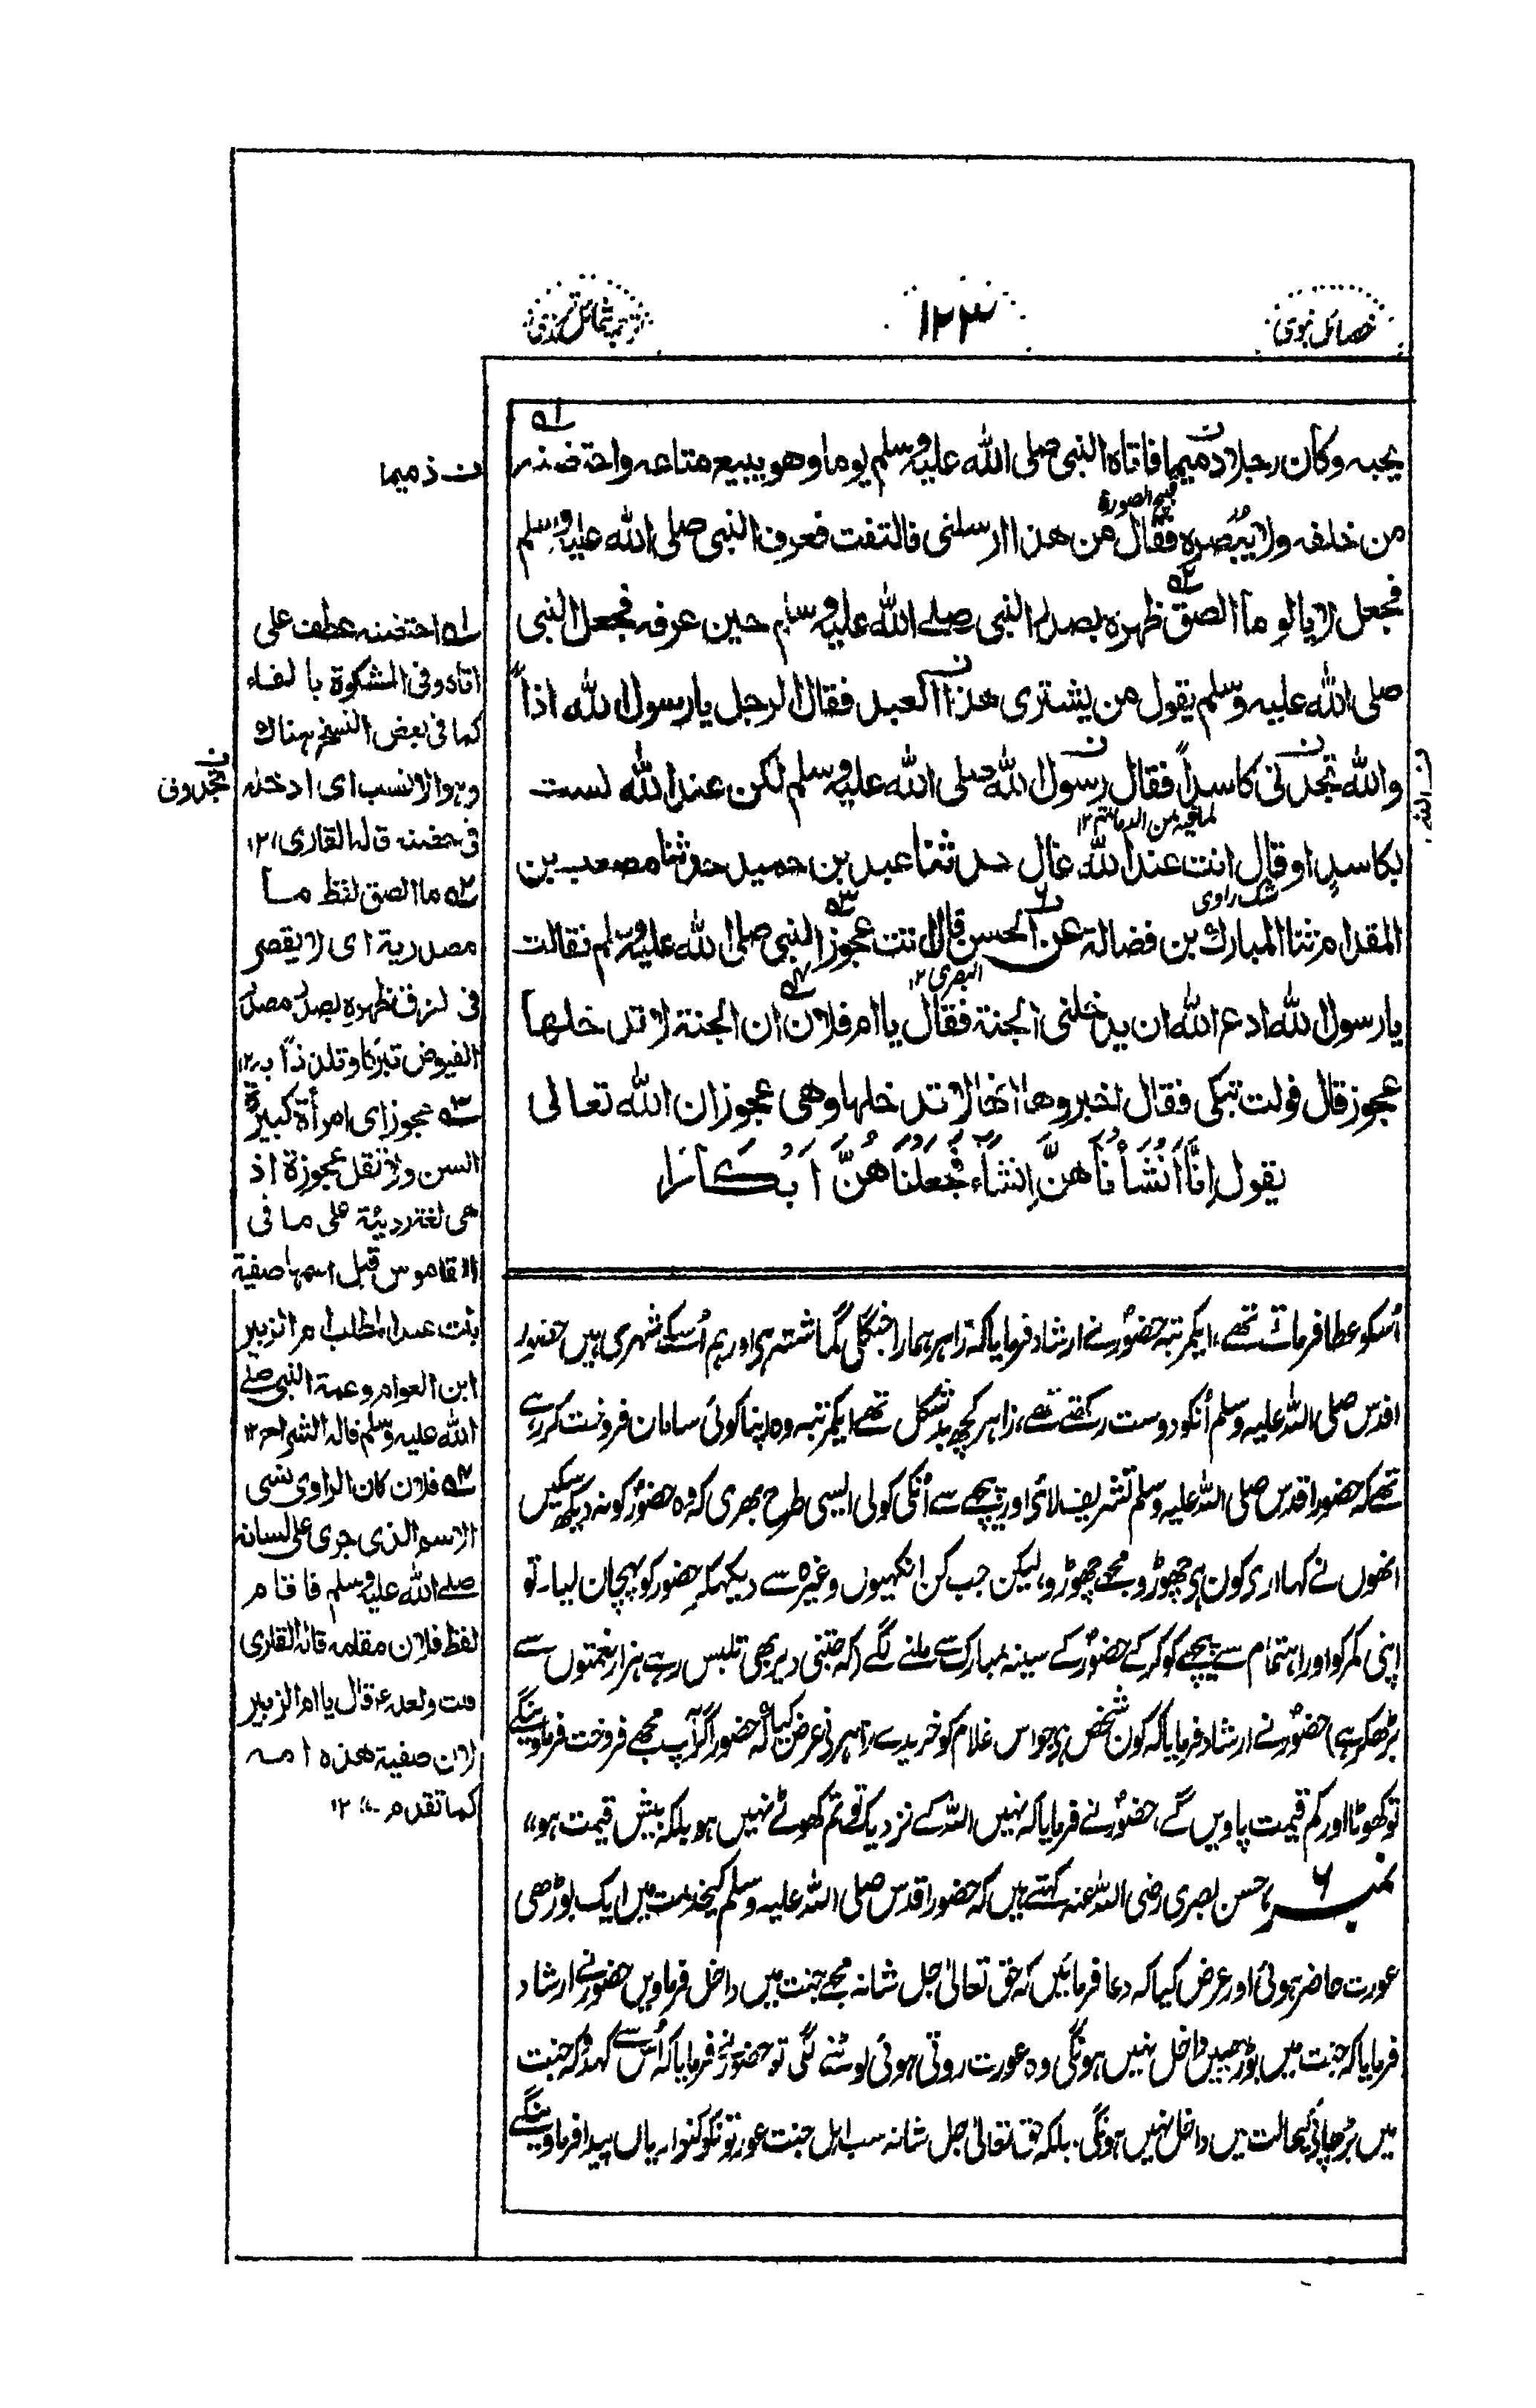 خصائل نبوی
۱۲۳
ترجمہ شمائل ترمذی
يحبه وكان رجلا دميما فاتاه النبی صلی الله علیه وسلم يوما وهو يبيع متاعه واحتضنه
قبیح الصورة
من خلفه ولا يبصره فقال من هذا ارسلنی فالتفت فعرف النبی صلی الله علیه وسلم
فجعل لا يالو ما الصق ظهره بصدر النبی صلے الله علیه وسلم حين عرفه فجعل النبی
صلی الله علیه وسلم يقول من يشتری هذا العبد فقال الرجل يا رسول الله اذاً
والله تجدنی كاسداً فقال رسول الله صلی الله علیه وسلم لكن عند الله لست
بكاسدٍ او قال انت عند الله غال حدثنا عبد بن حميد حدثنا مصعب بن
شک راوی
المقدام ثنا المبارك بن فضالة عن الحسن قال اتت عجوز النبی صلی الله علیه وسلم فقالت
البصری ۱۲
يا رسول الله ادع الله ان يدخلنی الجنة فقال يا ام فلان ان الجنة لا تدخلها
عجوز قال فولت تبكی فقال اخبروها انها لا تدخلها وهی عجوز ان الله تعالی
يقول اِنَّا اَنْشَأْنَاهُنَّ اِنْشَاءً فَجَعَلْنَاهُنَّ اَبْكَارًا
اُسکو عطا فرماتے تھے، ایکمرتبہ حضورؐ نے ارشاد فرمایا کہ زاہر ہمارا جنگلی گماشتہ ہی اور ہم اُسکے شہری ہیں حضورِ
اقدس صلی اللہ علیہ وسلم اُنکو دوست رکھتے تھے، زاہر کچھ بدشکل تھے ایکمرتبہ وہ اپنا کوئی سامان فروخت کررہے
تھے کہ حضور اقدس صلی اللہ علیہ وسلم تشریف لائی اور پیچھے سے اُنکی کولی ایسی طرح بھری کہ وہ حضورؐ کو نہ دیکھ سکیں
انھوں نے کہا اری کون ہی چھوڑو مجھے چھوڑو، لیکن جب کن انکھیوں وغیرہ سے دیکھکر حضور کو پہچان لیا۔ تو
اپنی کمر کو اور اہتمام سے پیچھے کو کرکے حضورؐ کے سینہ مبارک سے ملنے لگے (کہ جتنی دیر بھی تلبس رہے ہزار نعمتوں سے
بڑھکر ہے) حضورؐ نے ارشاد فرمایا کہ کون شخص ہی جو اس غلام کو خریدے، زاہر نی عرض کیا کہ حضور اگر آپ مجھے فروخت فرماوینگے
تو کھوٹا اور کم قیمت پاویں گے، حضورؐ نے فرمایا کہ نہیں اللہ کے نزدیک تو تم کھوٹے نہیں ہو بلکہ بیش قیمت ہو،،
نمبر ۶ حسن بصری رضی اللہ عنہ کہتے ہیں کہ حضور اقدس صلی اللہ علیہ وسلم کیخدمت میں ایک بوڑھی
عورت حاضر ہوئی اور عرض کیا کہ دعا فرمائیں کہ حق تعالیٰ جل شانہ مجھے جنت میں داخل فرماویں حضورؐ نے ارشاد
فرمایا کہ جنت میں بوڑھیں داخل نہیں ہونگی وہ عورت روتی ہوئی لوٹنے لگی تو حضورؐ نے فرمایا کہ اُس سے کہدو کہ جنت
میں بڑھاپے کیحالت میں داخل نہیں ہونگی، بلکہ حق تعالیٰ جل شانہ سب اہل جنت عورتونکو کنواریاں پیدا فرماوینگے
ن ذميما
۱ احتضنه عطف علی
اتاه وفی المشكوة بالفاء
كما فی بعض النسخ هناك
وهو الانسب ای ادخله
فی حضنه قاله القاری ۱۲
۲ ما الصق لفظ ما
مصدرية ای لا يقصر
فی لزق ظهره بصدر مصدر
الفيوض تبركا وتلذذا به ۱۲
۳ عجوز ای امرأة كبيرة
السن ولا تقل عجوزة اذ
هی لغة رديئة علی ما فی
القاموس قيل اسمها صفية
بنت عبد المطلب ام الزبير
ابن العوام وعمة النبی صلے
الله علیه وسلم قاله الشراح ۱۲
۴ فلان كان الراوی نسی
الاسم الذی جری علی لسانه
صلے الله علیه وسلم فاقام
لفظ فلان مقامه قاله القاری
قلت ولعله قال يا ام الزبير
لان صفية هذه امه
كما تقدم ۱۲
ن
تجدونی